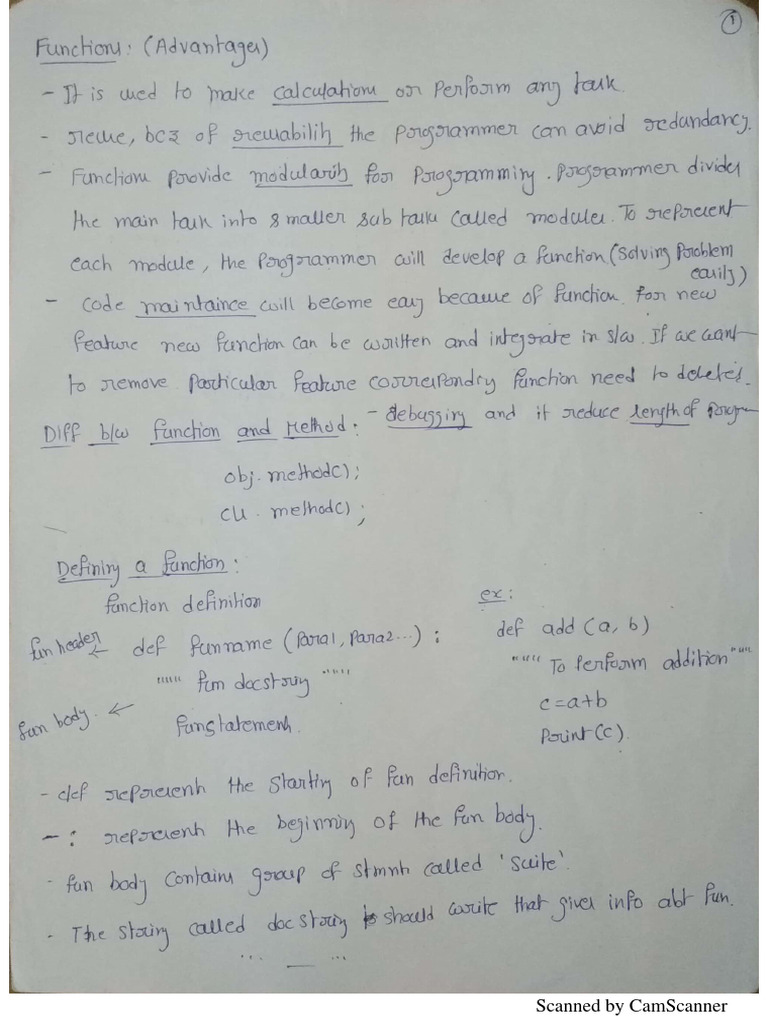 1
Functions: (Advantages)
- It is used to make calculations or perform any task.
- reuse, bcz of reusability the programmer can avoid redundancy.
- Functions provide modularity for programming. Programmer divides
the main task into smaller sub tasks called modules. To represent
each module, the programmer will develop a function (solving problem
easily)
- code maintaince will become easy because of function. for new
feature new function can be written and integrate in s/w. If we want
to remove particular feature corresponding function need to delete.
- debugging and it reduce length of program
Diff b/w function and method:
obj. method();
cls. method();
Defining a function:
function definition
fun header ← def funname (para1, para2...) :
""" fun docstring """
fun body. ← funstatements.
ex:
def add (a, b)
""" To perform addition """
c=a+b
print(c).
- def represents the starting of fun definition.
- : represents the beginning of the fun body.
- fun body contains group of stmnts called 'suite'.
- The string called docstring should write that gives info abt fun.
''' — '''
Scanned by CamScanner